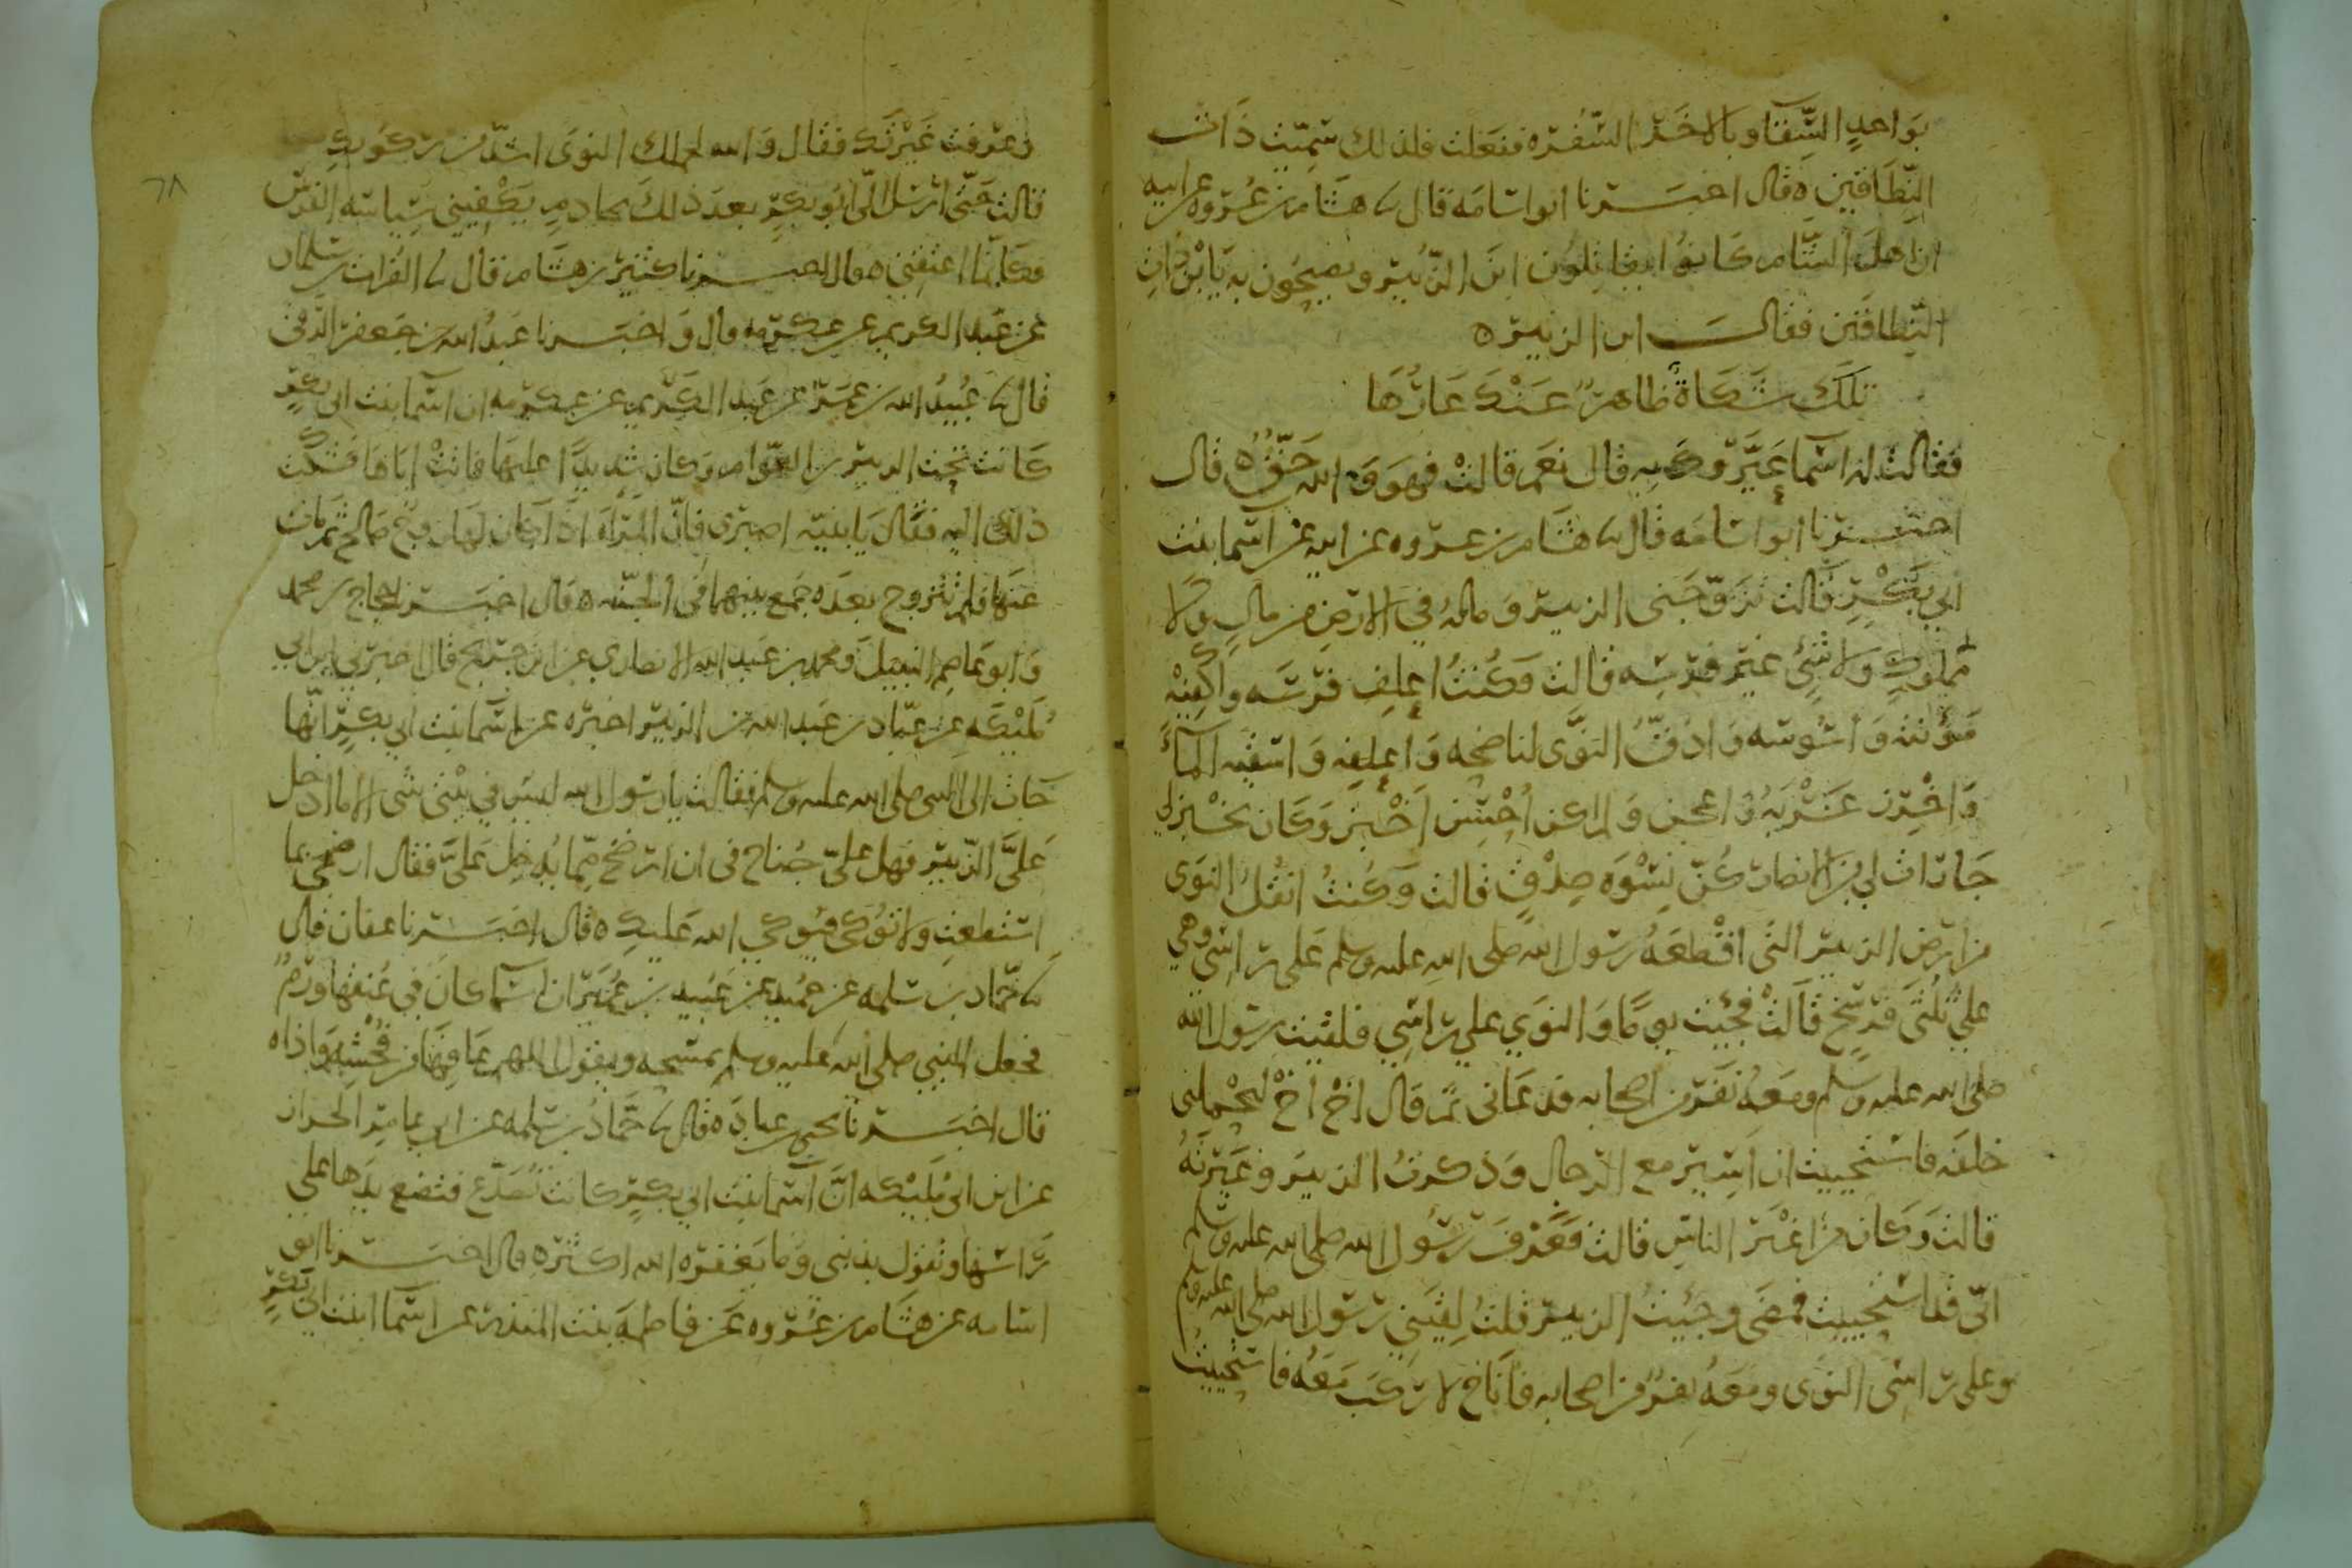 بواحدٍ السِّقا وبالاخر السُّفره ففعلت فلذلك سُمّيت ذات
النِّطاقين ٥ قال اخبرنا ابو اسامه قال ثنا هشام بن عُروه عن ابيه
ان اهل الشام كانوا يقاتلون ابن الزُّبير ويصيحون به يا بن ذات
النِّطاقين فقال ابن الزبير ٥
تلك شكاةٌ ظاهرٌ عنك عارُها
فقالت له اسما عيّروك به قال نعم قالت فهو والله حقٌّ ٥ قال
اخبرنا ابو اسامه قال ثنا هشام بن عروه عن ابيه عن اسما بنت
ابي بكرٍ قالت تزوّجني الزبير وماله في الارض من مالٍ ولا
مملوكٍ ولا شيءٍ غير فرسه قالت فكنتُ اعلف فرسه واكفيه
مَؤُنته واسُوسه وادُقّ النّوى لناضحه واعلفه واسقيه الماءَ
واخرز غَرْبَهُ واعجن ولم اكن اُحسن اخبز وكان يخبز لي
جاراتٌ لي من الانصار كُنّ نسوه صِدْقٍ قالت وكنتُ انقُلُ النوى
من ارض الزبير التي اقطعهُ رسول الله صلى الله عليه وسلم على راسي وهي
على ثُلثَى فرسخ قالت فجيت يومًا والنوى على راسي فلقيت رسول الله
صلى الله عليه وسلم ومعه نفر من اصحابه فدعاني ثم قال اخْ اخْ ليحملني
خلفه فاستحييت ان اسير مع الرجال وذكرتُ الزبير وغيرتَهُ
قالت وكان من اغير الناس قالت فعرف رسول الله صلى الله عليه وسلم
انّى قد استحييت فمضى وجيتُ الزبير فقلتُ لقيني رسول الله صلى الله عليه وسلم
وعلى راسي النوى ومعه نفرٌ من اصحابه فاناخ لاركب معه فاستحييتُ
وعرفت غيرتَك فقال والله لحملك النوى اشدّ من ركوبكِ
قالت حتّى ارسل الىّ ابو بكرٍ بعد ذلك بخادمٍ يكفيني سِياسه الفرس
فكانما اعتقني ٥ قال اخبرنا كثير بن هشام قال ثنا الفرات بن سلمان
عن عبد الكريم عن عكرمه قال واخبرنا عبدُ الله بن جعفر الرقى
قال ثنا عُبيدُ الله بن عمرٍو عن عبد الكريم عن عكرمه ان اسما بنت ابي بكرٍ
كانت تحت الزبير بن العوّام وكان شديدًا عليها فاتتْ اباها فشكت
ذلك اليه فقال يا بنيّه اصبرى فانّ المرأه اذا كان لها زوج صالح ثم مات
عنها فلم تتزوج بعده جُمع بينهما في الجنّه ٥ قال اخبرنا حجاج بن محمد
وابو عاصم النبيل ومحمد بن عبد الله الانصاري عن ابن جريج قال اخبرني ابن ابي
مُليكه عن عبّاد بن عبد الله بن الزبير اخبره عن اسما بنت ابي بكرٍ انّها
جات الى النبي صلى الله عليه وسلم فقالت يا رسول الله ليس في بيتي شى الا ما ادخل
علىَّ الزّبير فهل علىّ جُناح في ان ارضخ ممّا يُدخِل علىَّ فقال ارضخي ما
استطعتِ ولا تُوكى فيوكي الله عليكِ ٥ قال اخبرنا عفان قال
ثنا حمّاد بن سلمه عن حُميد عن عبيد بن عُمَير ان اسما كان في عُنقها ورمٌ
فجعل النبي صلى الله عليه وسلم يمسحه ويقول اللهم عافِها من فُحْشِه واذاه
قال اخبرنا يحيى بن عباد ٥ قال ثنا حمّادُ بن سلمه عن ابي عامرٍ الخزاز
عن ابن ابي مُليكه انّ اسما بنت ابي بكرٍ كانت تُصدّع فتضع يدها على
راسها وتقول بذنبي وما يغفره الله اكثر ٥ قال اخبرنا ابو
اسامه عن هشام بن عُروه عن فاطمه بنت المنذر عن اسما ابنت ابي بكرٍ